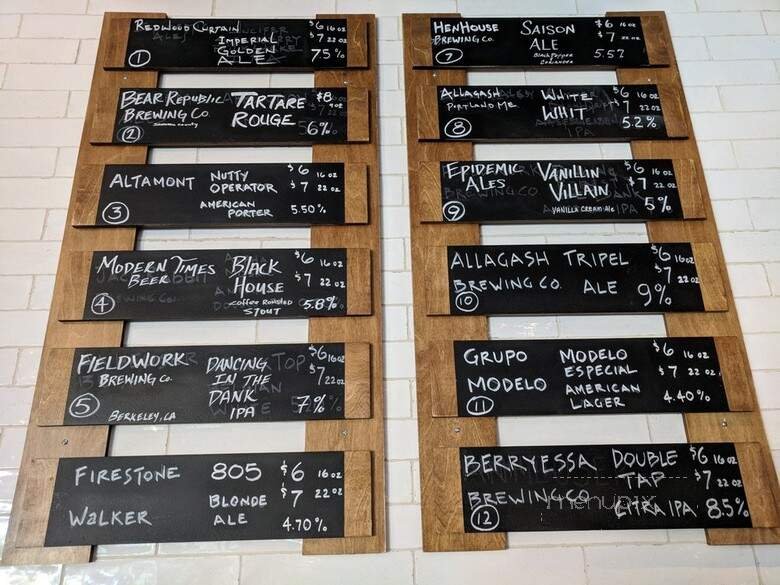 REDWOOD CURTAIN
IMPERIAL
GOLDEN
ALE
$6 16 oz
$7 22 oz
7.5%
1
BEAR REPUBLIC
BREWING CO.
Sonoma County
TARTARE
ROUGE
$8
6%
2
ALTAMONT
NUTTY
OPERATOR
AMERICAN
PORTER
$6 16 oz
$7 22 oz
5.50%
3
MODERN TIMES
BEER
BLACK
HOUSE
COFFEE ROASTED
STOUT
$6 16 oz
$7 22 oz
5.8%
4
FIELDWORK
BREWING CO.
BERKELEY, CA
DANCING
IN THE
DANK
IPA
$6 16 oz
$7 22 oz
7%
5
FIRESTONE
WALKER
805
BLONDE
ALE
$6 16 oz
$7 22 oz
4.70%
HENHOUSE
BREWING CO.
SAISON
ALE
BLACK PEPPER
CORIANDER
$6 16 oz
$7 22 oz
5.5%
7
ALLAGASH
PORTLAND ME.
WHITE
WHIT
$6 16 oz
$7 22 oz
5.2%
8
EPIDEMIC
ALES
VANILLIN
VILLAIN
VANILLA CREAM ALE
$6 16 oz
$7 22 oz
5%
9
ALLAGASH
BREWING CO.
TRIPEL
ALE
$6 16 oz
$7 22 oz
9%
10
GRUPO
MODELO
MODELO
ESPECIAL
AMERICAN
LAGER
$6 16 oz
$7 22 oz
4.40%
11
BERRYESSA
BREWING CO
DOUBLE
TAP
CITRA IPA
$6 16 oz
$7 22 oz
8.5%
12
menupix